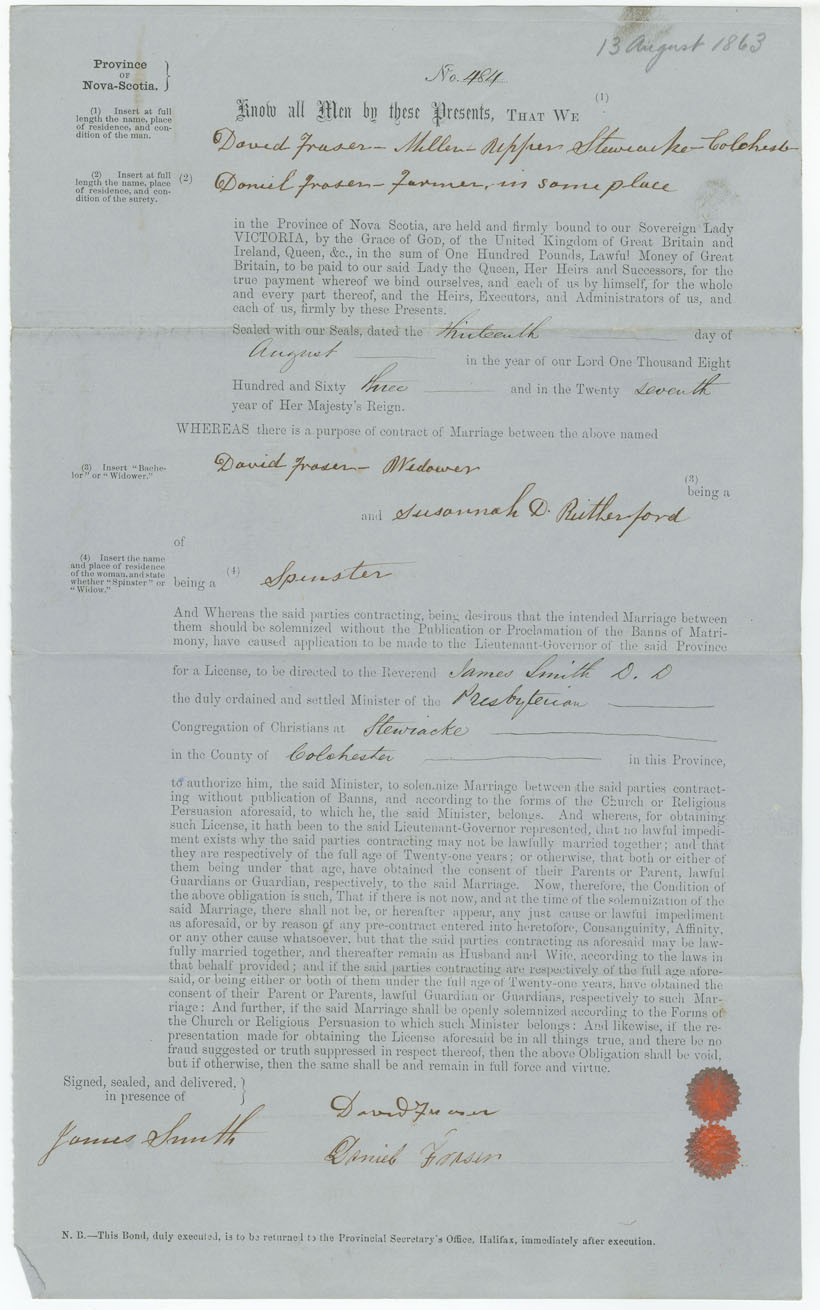 13 August 1863
Province
OF
Nova-Scotia.
No. 484
(1) Insert at full
length the name, place
of residence, and con-
dition of the man.
Know all Men by these Presents, THAT WE (1)
David Fraser - Miller - Upper Stewiacke - Colchester
(2) Insert at full
length the name, place
of residence, and con-
dition of the surety.
(2) Daniel Fraser - Farmer, in same place
in the Province of Nova Scotia, are held and firmly bound to our Sovereign Lady
VICTORIA, by the Grace of God, of the United Kingdom of Great Britain and
Ireland, Queen, &c., in the sum of One Hundred Pounds, Lawful Money of Great
Britain, to be paid to our said Lady the Queen, Her Heirs and Successors, for the
true payment whereof we bind ourselves, and each of us by himself, for the whole
and every part thereof, and the Heirs, Executors, and Administrators of us, and
each of us, firmly by these Presents.
Sealed with our Seals, dated the thirteenth day of
August in the year of our Lord One Thousand Eight
Hundred and Sixty three and in the Twenty seventh
year of Her Majesty's Reign.
WHEREAS there is a purpose of contract of Marriage between the above named
(3) Insert "Bache-
lor" or "Widower."
David Fraser - Widower
(3)
being a
and Susannah D. Rutherford
of
(4) Insert the name
and place of residence
of the woman, and state
whether "Spinster" or
"Widow."
being a (4) Spinster
And Whereas the said parties contracting, being desirous that the intended Marriage between
them should be solemnized without the Publication or Proclamation of the Banns of Matri-
mony, have caused application to be made to the Lieutenant-Governor of the said Province
for a License, to be directed to the Reverend James Smith D. D
the duly ordained and settled Minister of the Presbyterian
Congregation of Christians at Stewiacke
in the County of Colchester in this Province,
to authorize him, the said Minister, to solemnize Marriage between the said parties contract-
ing without publication of Banns, and according to the forms of the Church or Religious
Persuasion aforesaid, to which he, the said Minister, belongs. And whereas, for obtaining
such License, it hath been to the said Lieutenant-Governor represented, that no lawful impedi-
ment exists why the said parties contracting may not be lawfully married together; and that
they are respectively of the full age of Twenty-one years; or otherwise, that both or either of
them being under that age, have obtained the consent of their Parents or Parent, lawful
Guardians or Guardian, respectively, to the said Marriage. Now, therefore, the Condition of
the above obligation is such, That if there is not now, and at the time of the solemnization of the
said Marriage, there shall not be, or hereafter appear, any just cause or lawful impediment
as aforesaid, or by reason of any pre-contract entered into heretofore, Consanguinity, Affinity,
or any other cause whatsoever, but that the said parties contracting as aforesaid may be law-
fully married together, and thereafter remain as Husband and Wife, according to the laws in
that behalf provided; and if the said parties contracting are respectively of the full age afore-
said, or being either or both of them under the full age of Twenty-one years, have obtained the
consent of their Parent or Parents, lawful Guardian or Guardians, respectively to such Mar-
riage: And further, if the said Marriage shall be openly solemnized according to the Forms of
the Church or Religious Persuasion to which such Minister belongs: And likewise, if the re-
presentation made for obtaining the License aforesaid be in all things true, and there be no
fraud suggested or truth suppressed in respect thereof, then the above Obligation shall be void,
but if otherwise, then the same shall be and remain in full force and virtue.
Signed, sealed, and delivered,
in presence of
James Smith
David Fraser
Daniel Fraser
N. B.—This Bond, duly executed, is to be returned to the Provincial Secretary's Office, Halifax, immediately after execution.